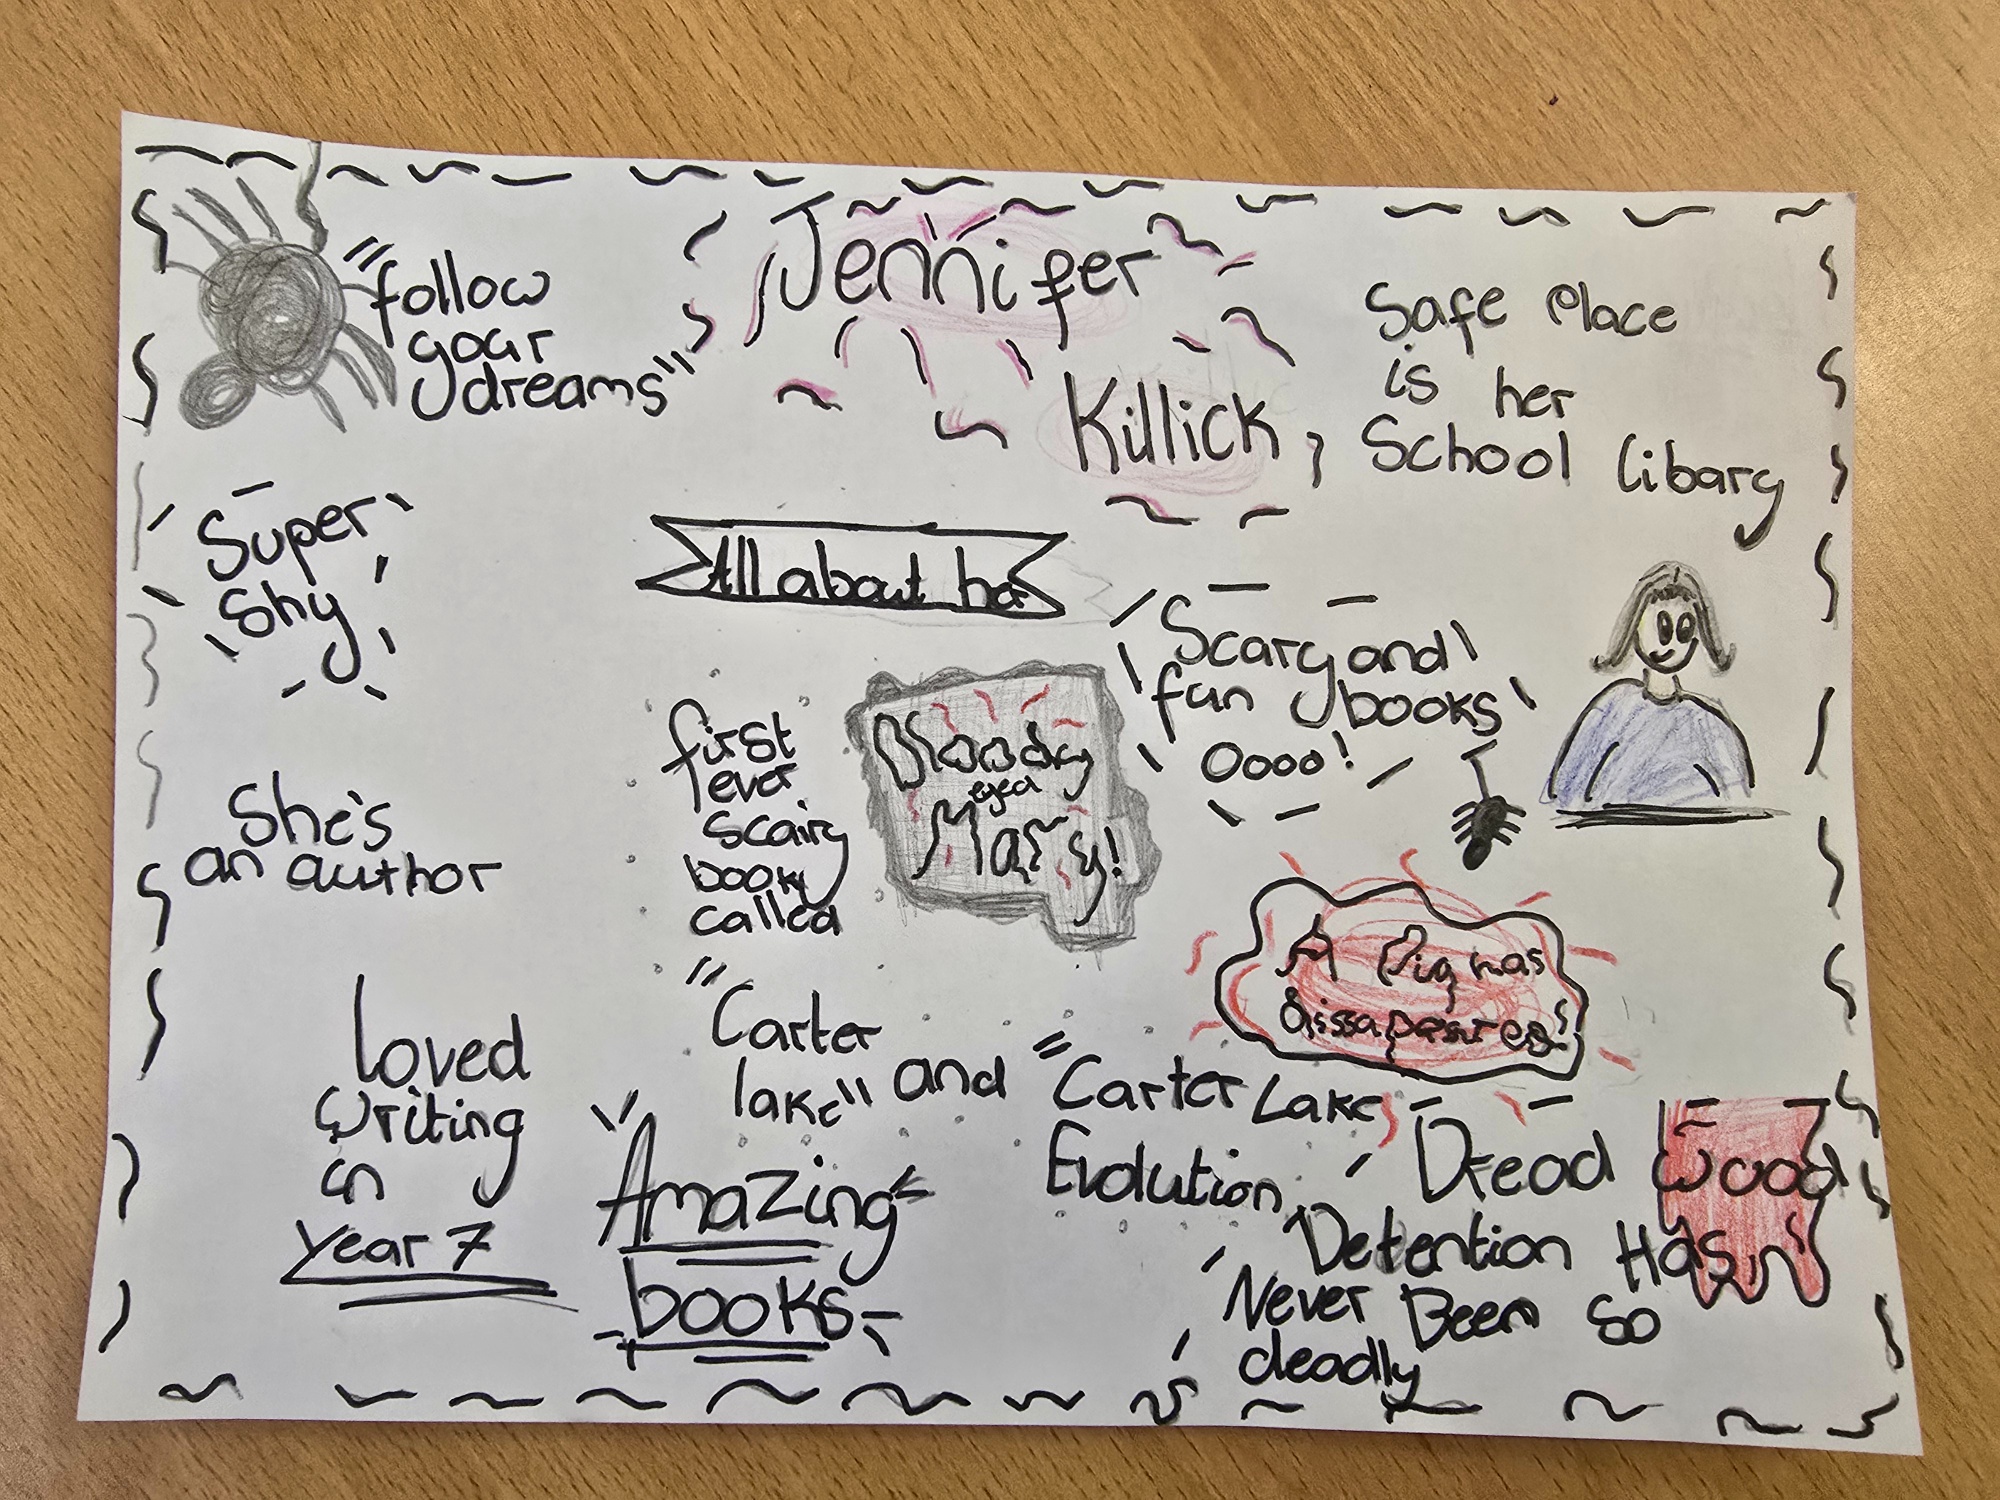 Jennifer
Killick
"follow
your
dreams"
Safe Place
is her
School libary
Super
shy
All about her
Scary and
fun books
Oooo!
first
ever
scairy
book
called
Bloody
eyed
Mary!
She's
an author
A Pig has
dissapeared!
"Carter
lake" and "Carter Lake
Evolution
loved
writing
in
Year 7
Amazing
books
Dread wood
Detention Hasn't
Never Been so
deadly